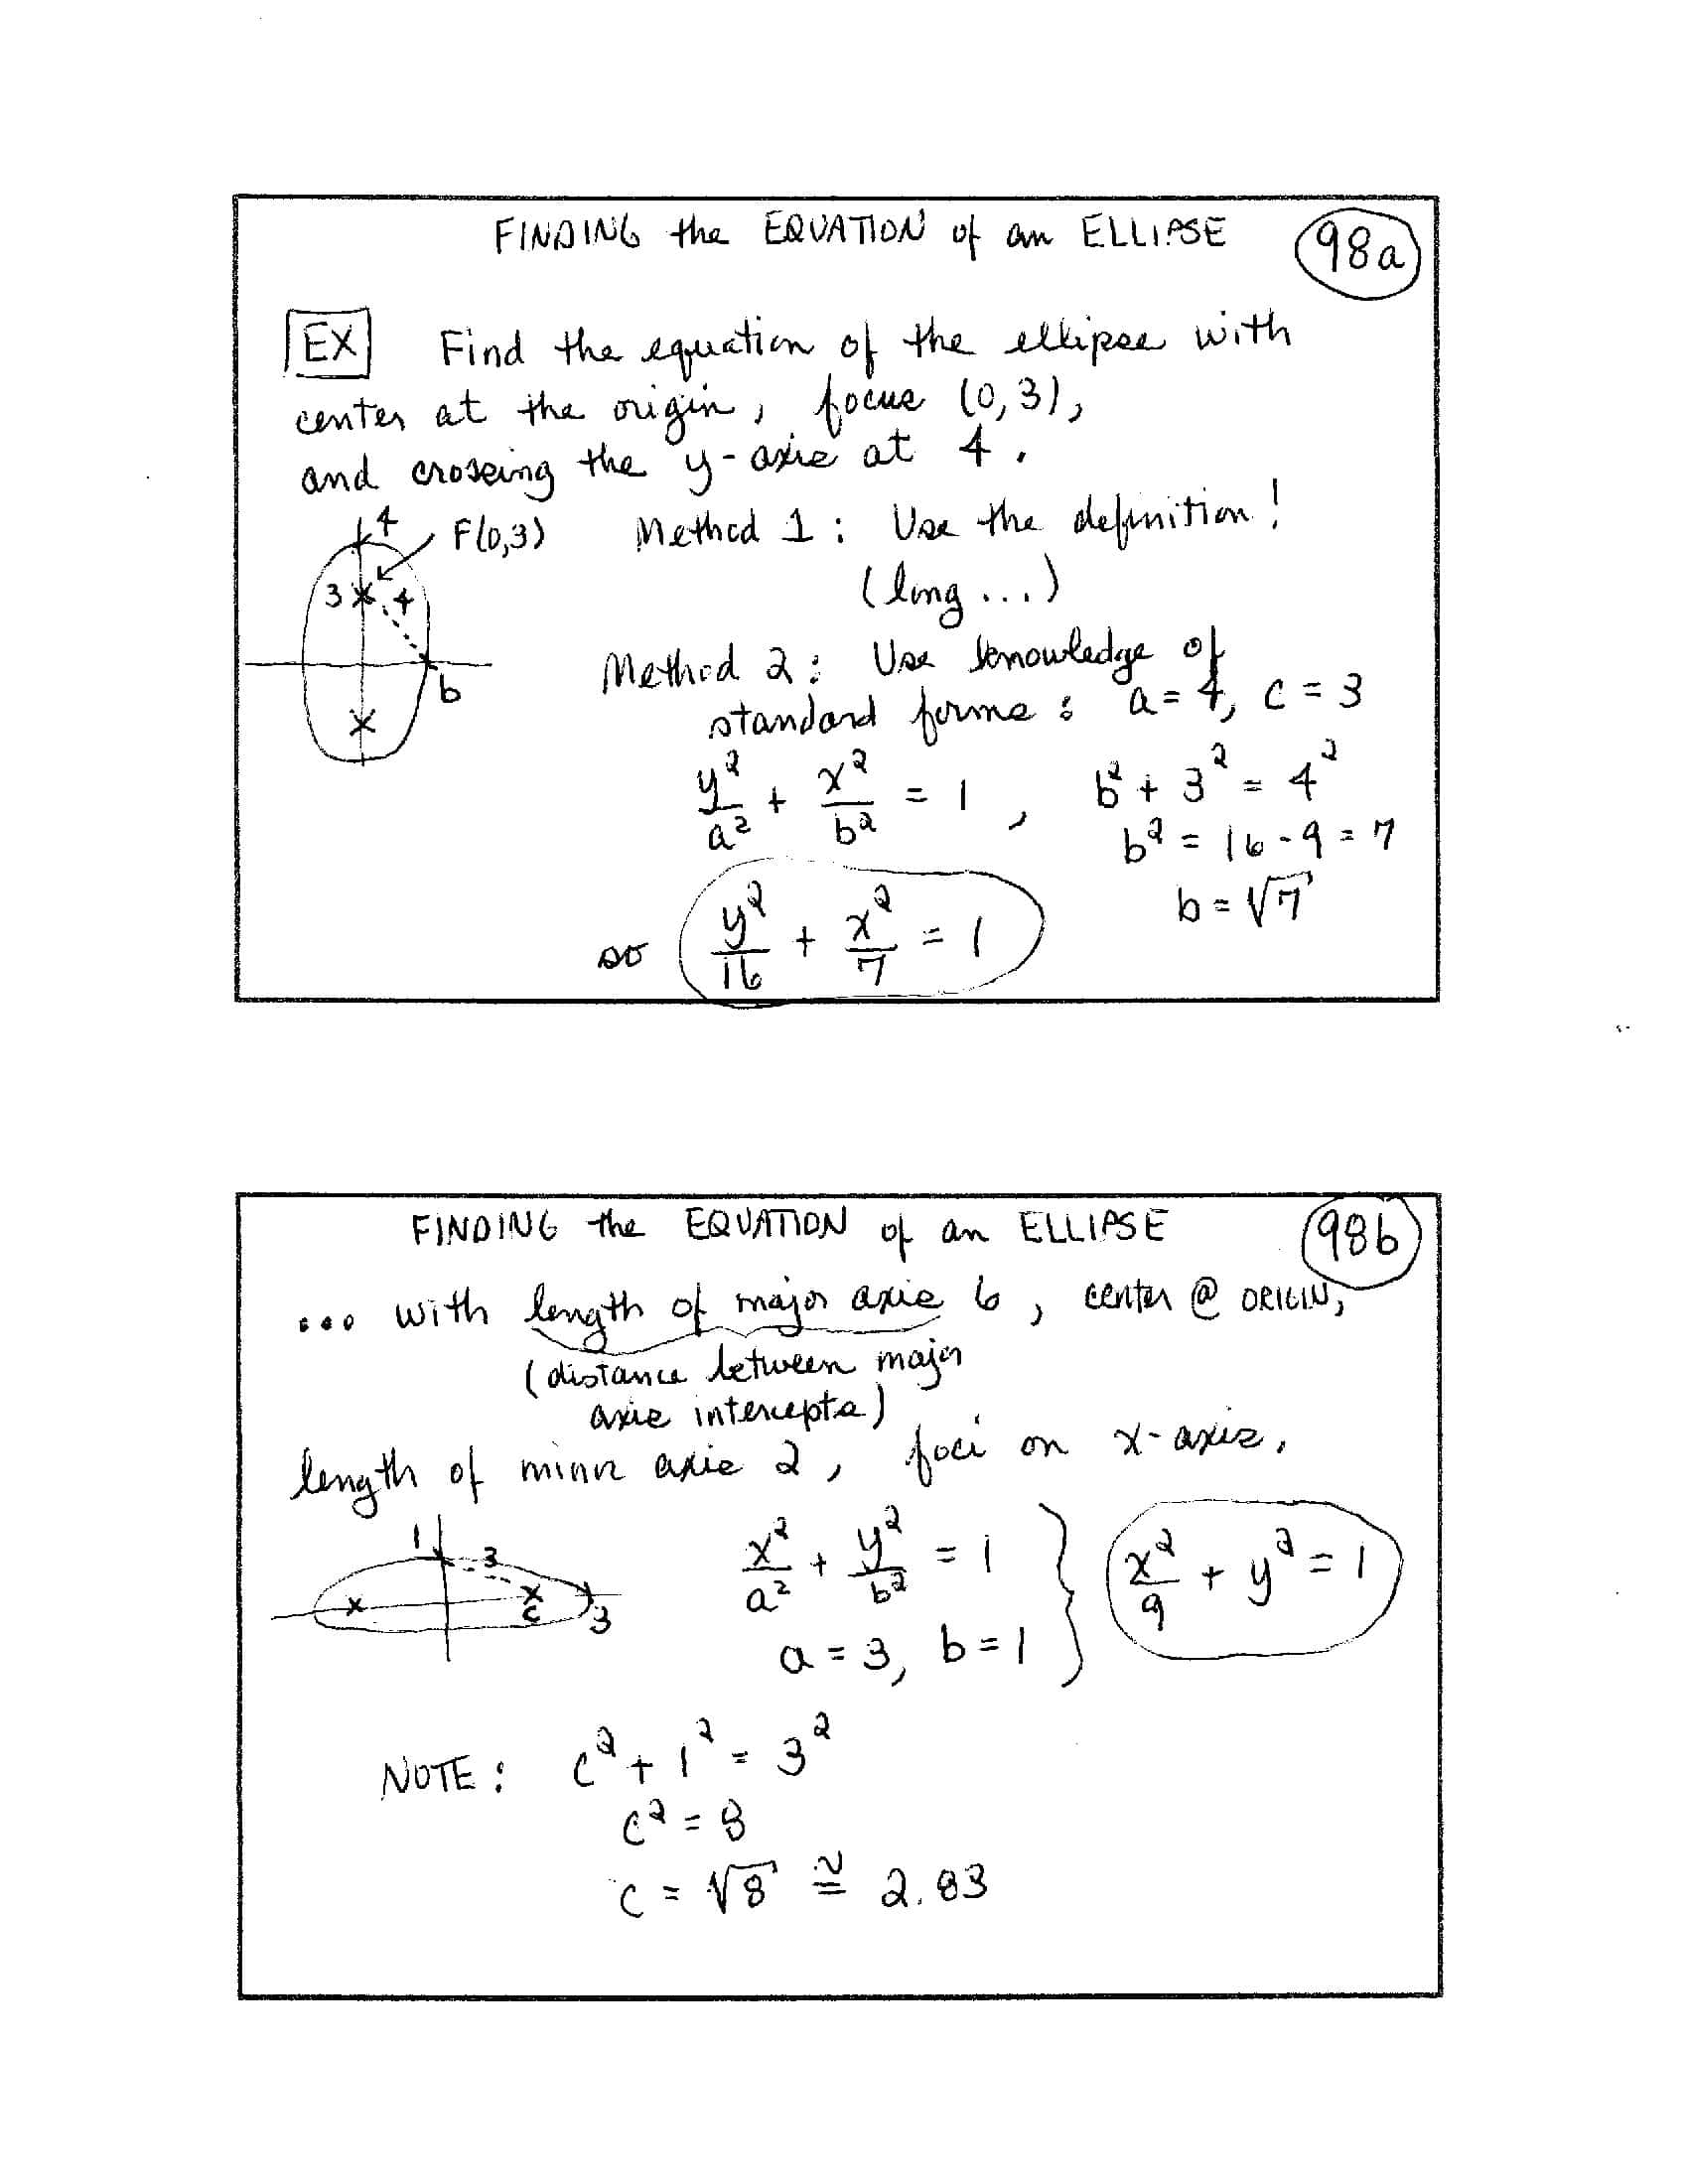 FINDING the EQUATION of an ELLIPSE
98a
EX Find the equation of the ellipse with
center at the origin, focus (0,3),
and crossing the y-axis at 4.
4
F(0,3)
3
4
b
Method 1: Use the definition!
(long...)
Method 2: Use knowledge of
standard forms: a = 4, c = 3
y²/a² + x²/b² = 1,
b² + 3² = 4²
b² = 16 - 9 = 7
b = √7
so y²/16 + x²/7 = 1
FINDING the EQUATION of an ELLIPSE
98b
... with length of major axis 6, center @ ORIGIN,
(distance between major
axis intercepts)
length of minor axis 2, foci on x-axis.
1
3
c
3
x²/a² + y²/b² = 1
a = 3, b = 1
x²/9 + y² = 1
NOTE: c² + 1² = 3²
c² = 8
c = √8 ≅ 2.83